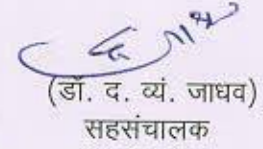 (डॉ. द. व्यं. जाधव)
सहसंचालक